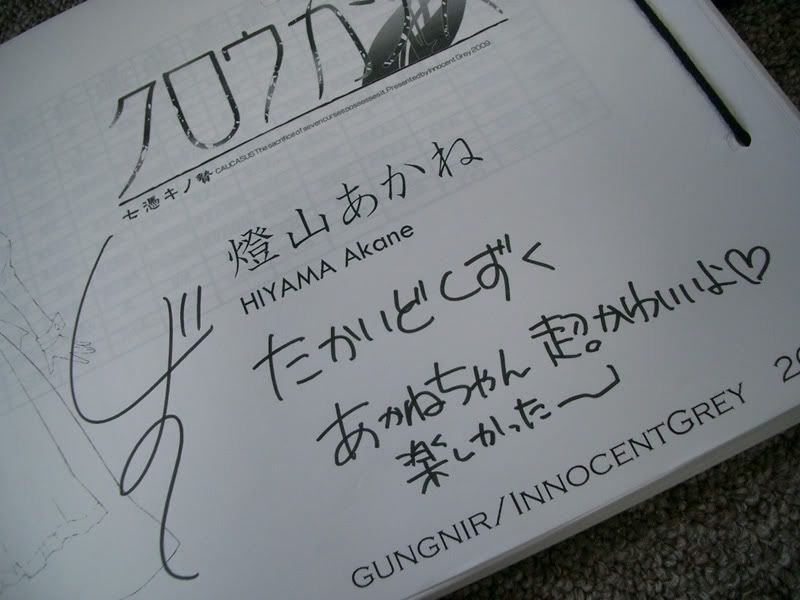 クロウカシス
七憑キノ贄 CAUCASUS The sacrifice of seven curses possesses it. Presented by Innocent Grey 2009.
燈山あかね
HIYAMA Akane
たかいどしずく
あかねちゃん 超。かわいいよ♡
楽しかった〜
GUNGNIR/INNOCENTGREY